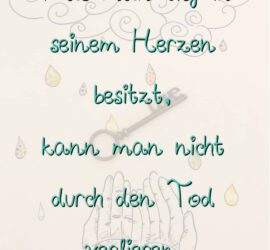 seinem Herzen
besitzt,
kann man nicht
durch den Tod
verlieren